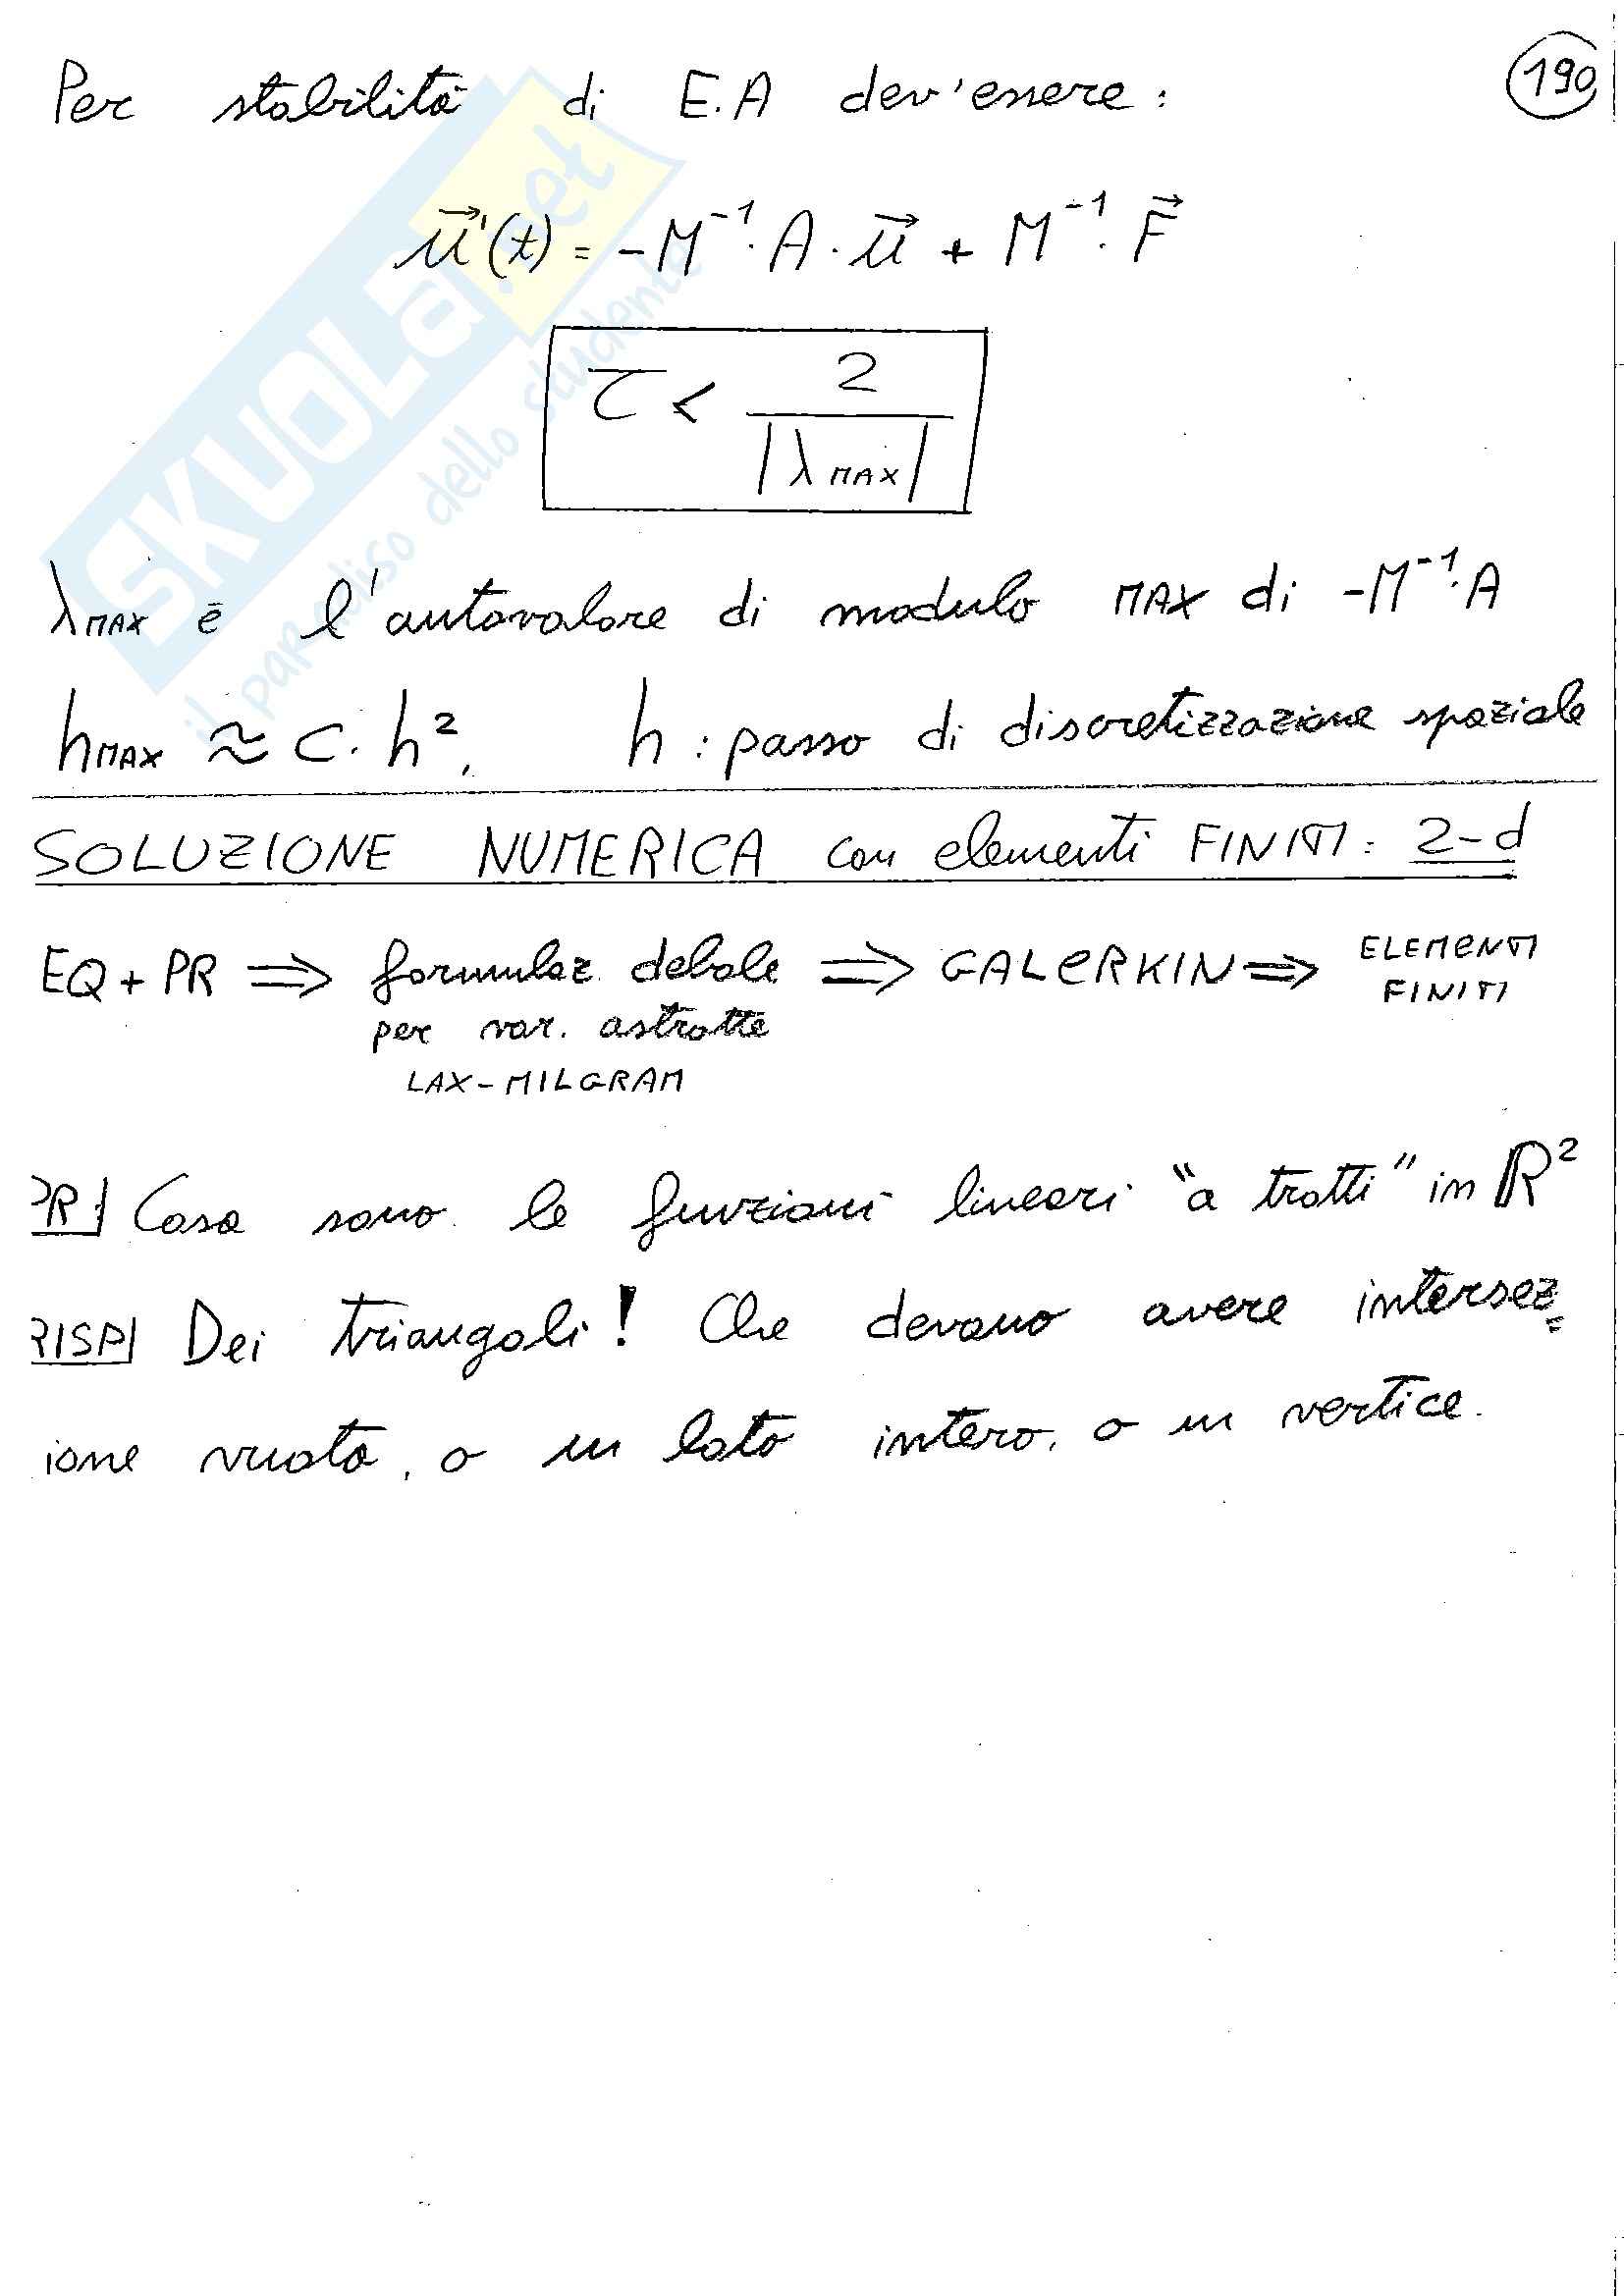 190
Per stabilità di E.A dev'essere:
u⃗'(t) = -M⁻¹·A·u⃗ + M⁻¹·F⃗
τ < 2 / |λMAX|
λMAX è l'autovalore di modulo MAX di -M⁻¹·A
hMAX ≈ C·h², h: passo di discretizzazione spaziale
SOLUZIONE NUMERICA con elementi FINITI: 2-d
EQ + PR ⇒ formulaz. debole ⇒ GALERKIN ⇒ ELEMENTI FINITI
per var. astratte
LAX-MILGRAM
PR: Cosa sono le funzioni lineari "a tratti" in ℝ²
RISP Dei triangoli! Che devono avere intersez=
ione vuota, o un lato intero, o un vertice.
SKUOLA.net
il paradiso dello studente